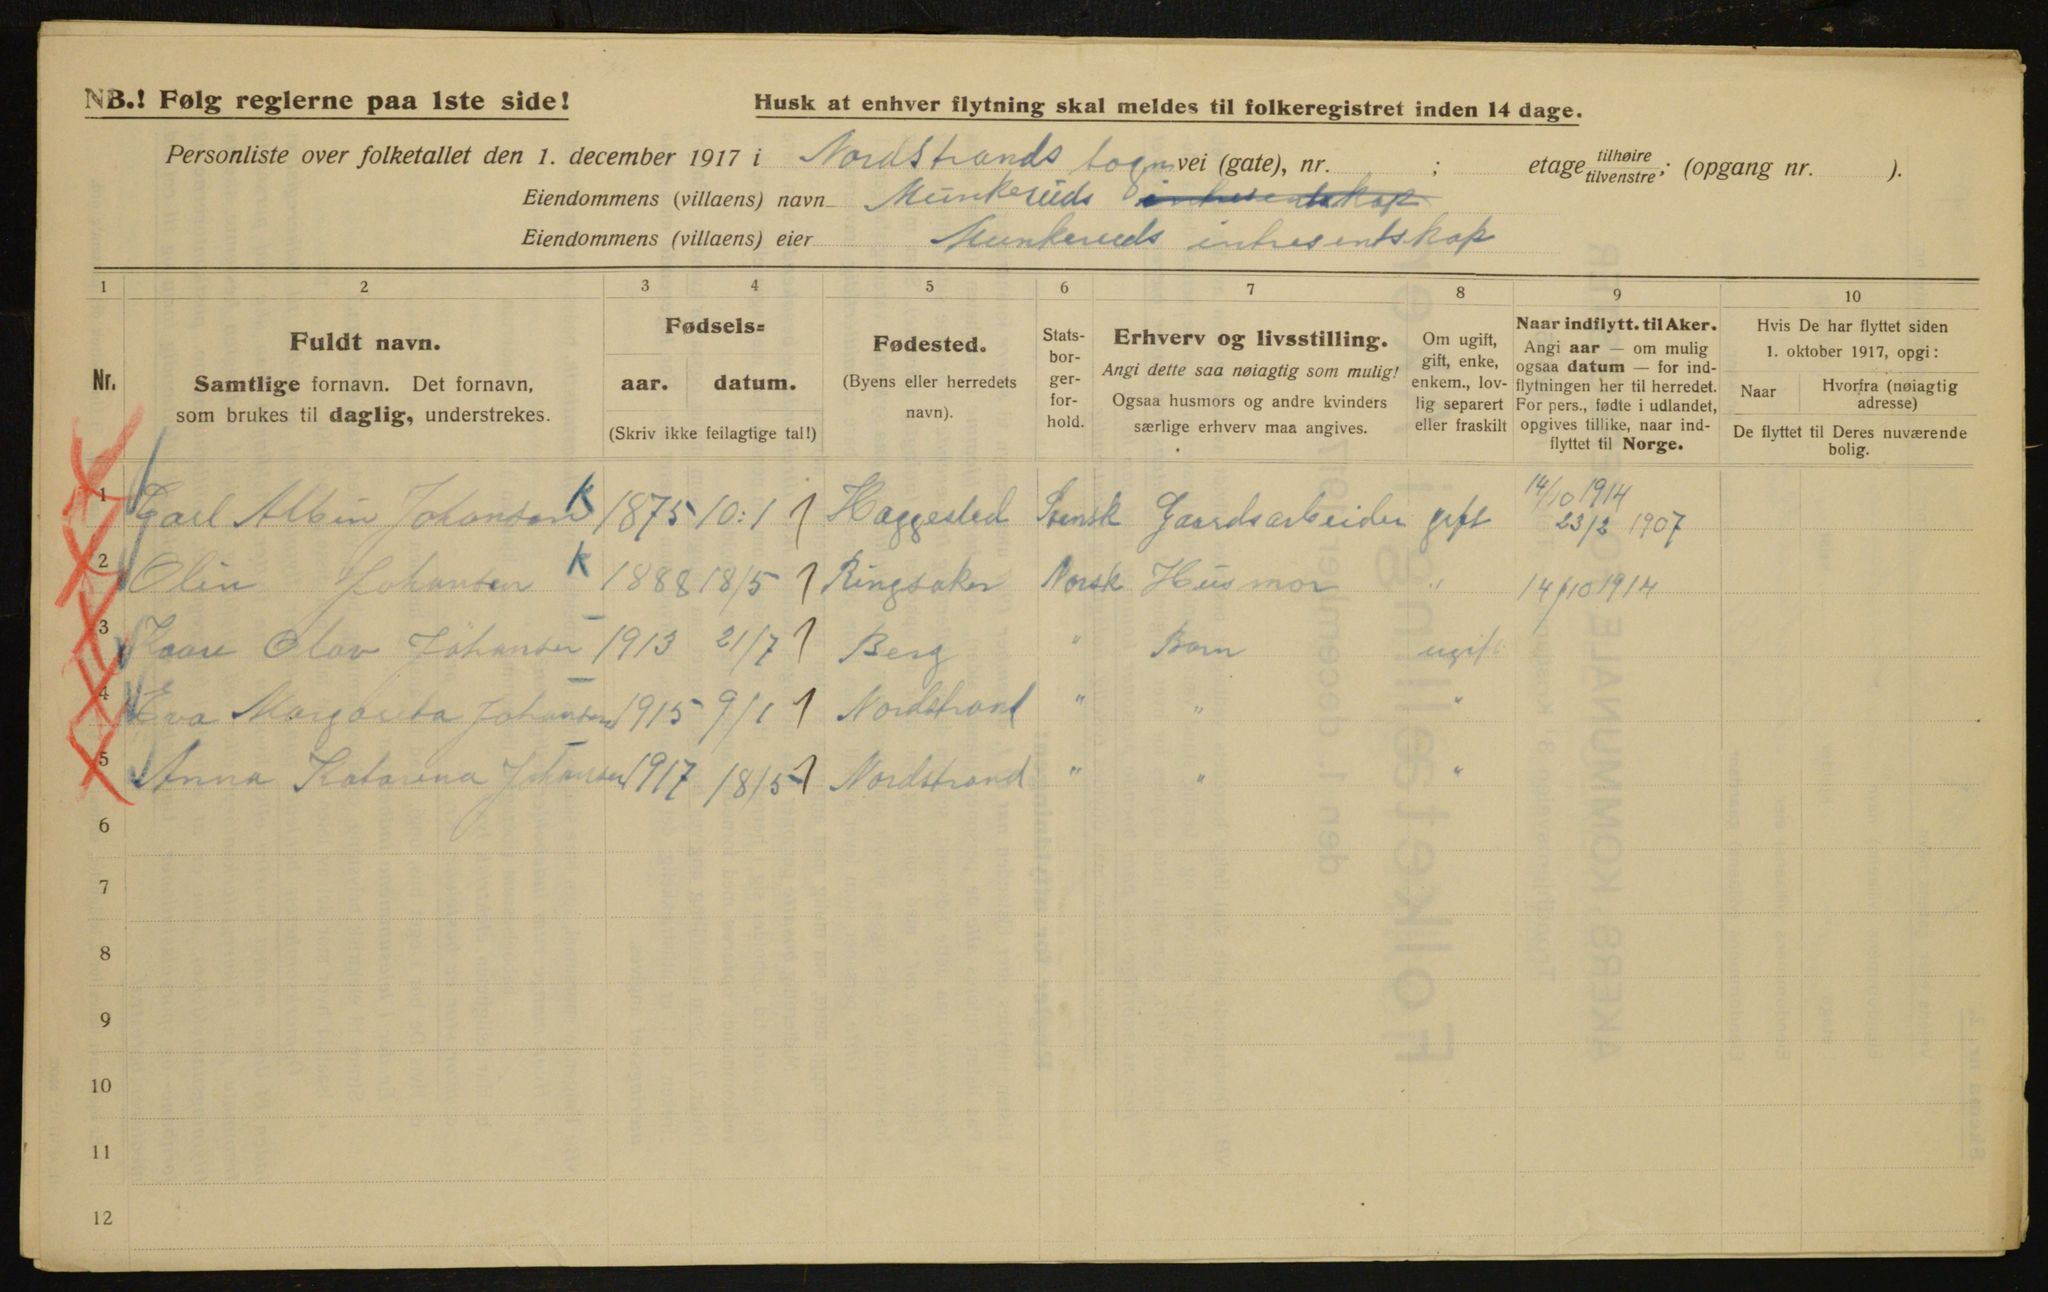 NB.! Følg reglerne paa 1ste side!
Husk at enhver flytning skal meldes til folkeregistret inden 14 dage.
Personliste over folketallet den 1. december 1917 i Nordstrands vei (gate), nr. ; etage tilhøire tilvenstre; (opgang nr. ).
Eiendommens (villaens) navn Munkeruds
Eiendommens (villaens) eier Munkeruds intresentskap
1 2 3 4 5 6 7 8 9 10
Nr.
Fuldt navn.
Samtlige fornavn. Det fornavn,
som brukes til daglig, understrekes.
Fødsels=
aar. datum.
(Skriv ikke feilagtige tal!)
Fødested.
(Byens eller herredets
navn).
Stats-
bor-
ger-
for-
hold.
Erhverv og livsstilling.
Angi dette saa nøiagtig som mulig!
Ogsaa husmors og andre kvinders
særlige erhverv maa angives.
Om ugift,
gift, enke,
enkem., lov-
lig separert
eller fraskilt
Naar indflytt. til Aker.
Angi aar — om mulig
ogsaa datum — for ind-
flytningen her til herredet.
For pers., fødte i udlandet,
opgives tillike, naar ind-
flyttet til Norge.
Hvis De har flyttet siden
1. oktober 1917, opgi:
Naar
Hvorfra (nøiagtig
adresse)
De flyttet til Deres nuværende
bolig.
14/10 1914
1 Carl Albin Johansen K 1875 10:1 Haggested Svensk Gaardsarbeider gift 23/2 1907
2 Olin Johansen K 1888 18/5 Ringsaker Norsk Husmor " 14/10 1914
3 Kaare Olav Johansen 1913 21/7 Berg " Barn ugift
4 Eva Margareta Johansen 1915 9/1 Nordstrand " " "
5 Anna Katarena Johansen 1917 18/5 Nordstrand " " "
6
7
8
9
10
11
12